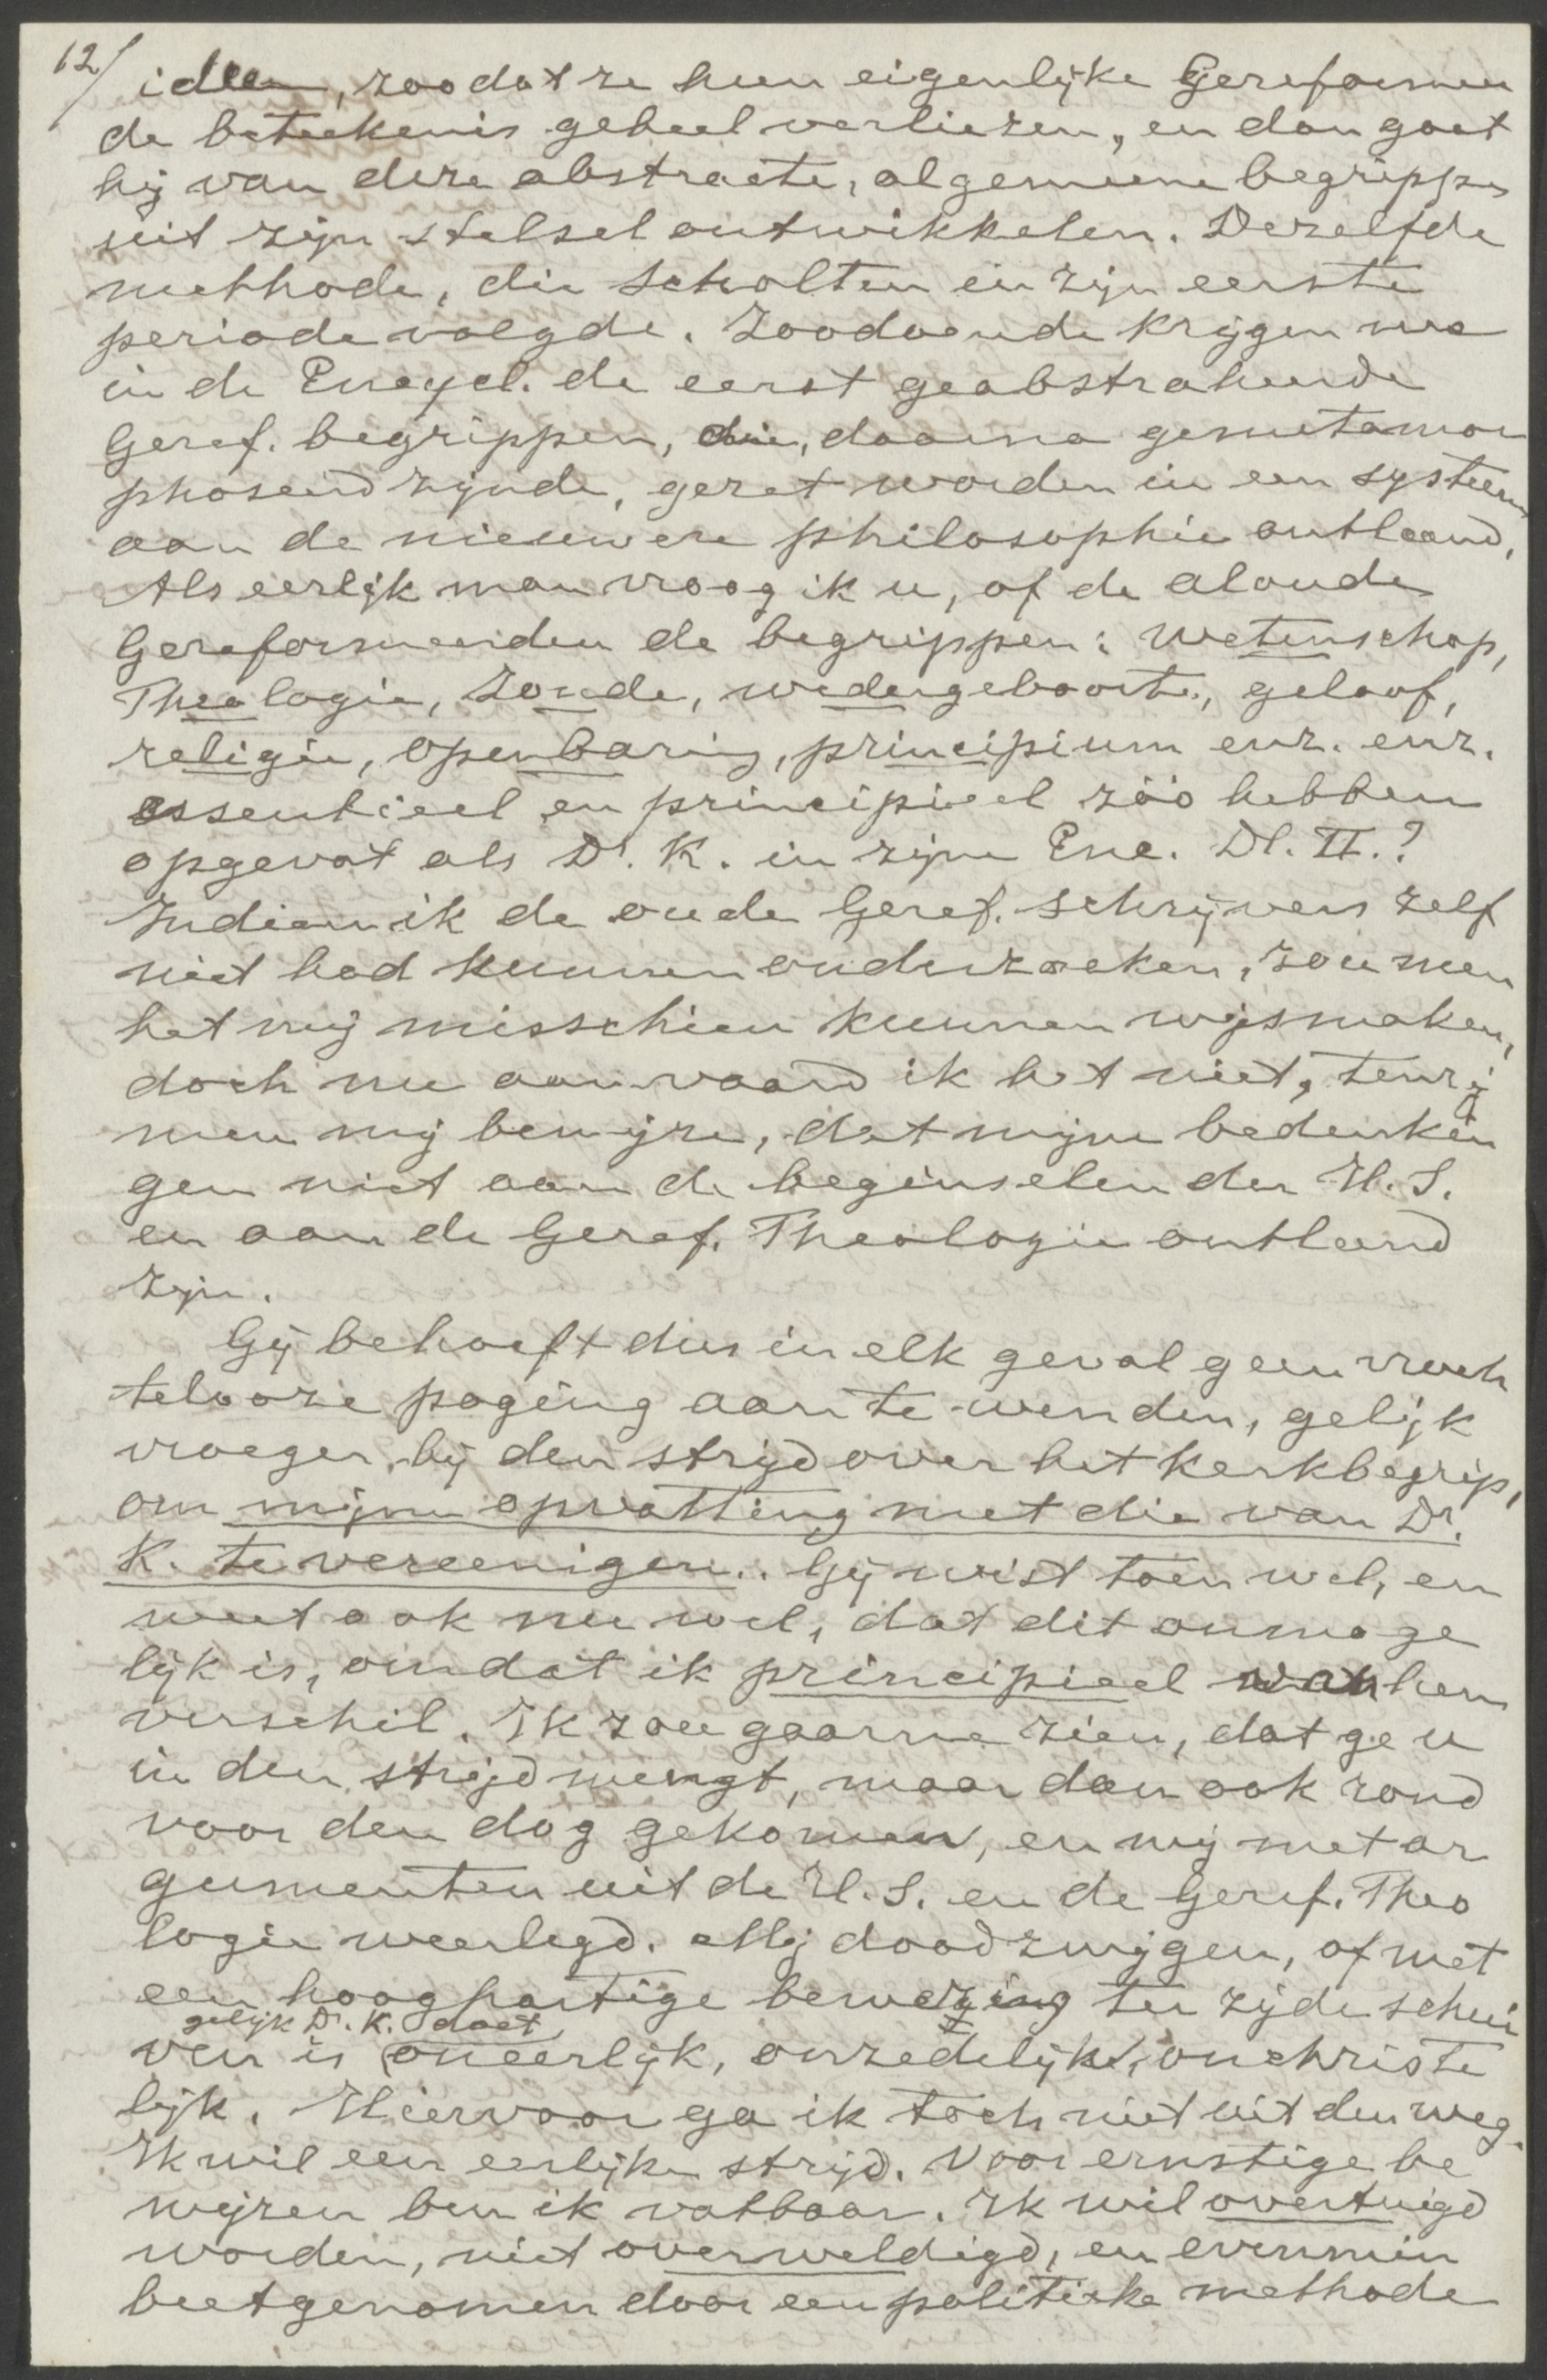 12/
ideën, zoodat ze hun eigenlijke Gereformeer
de beteekenis geheel verliezen, en dan gaat
hij van deze abstracte, algemeene begrippen
uit zijn stelsel ontwikkelen. Dezelfde
methode, die Scholten in zijn eerste
periode volgde. Zoodoende krijgen we
in de Encycl. de eerst geabstraheerde
Geref. begrippen, die, daarna gemetamor
phoseerd zijnde, gezet worden in een systeem
aan de nieuwere philosophie ontleend,
Als eerlijk man vraag ik u, of de aloude
Gereformeerden de begrippen: wetenschap,
Theologie, zonde, wedergeboorte, geloof,
religie, openbaring, principium enz. enz.
essentieel en principieel zóó hebben
opgevat als Dr. K. in zijne Enc. Dl. II.?
Indien ik de oude Geref. schrijvers zelf
niet had kunnen onderzoeken, zou men
het mij misschien kunnen wijsmaken,
doch nu aanvaard ik het niet, tenzij
men mij bewijze, dat mijne bedenkin
gen niet aan de beginselen der H.S.
en aan de Geref. Theologie ontleend
zijn.
Gij behoeft dus in elk geval geen vruch
telooze poging aan te wenden, gelijk
vroeger bij den strijd over het kerkbegrip,
om mijne opvatting met die van Dr.
K. te vereenigen.. Gij wist toen wel, en
weet ook nu wel, dat dit onmoge
lijk is, omdat ik principieel van hem
verschil. Ik zou gaarne zien, dat ge u
in den strijd mengt, maar dan ook rond
voor den dag gekomen, en mij met ar
gumenten uit de H.S. en de Geref. Theo
logie weerlegd. Mij doodzwijgen, of met
een hooghartige beweging ter zijde schui
gelijk Dr. K. doet,
ven is oneerlijk, onzedelijk, onchriste
lijk. Hiervoor ga ik toch niet uit den weg.
Ik wil een eerlijke strijd. Voor ernstige be
wijzen ben ik vatbaar. Ik wil overtuigd
worden, niet overweldigd, en evenmin
beetgenomen door een politieke methode